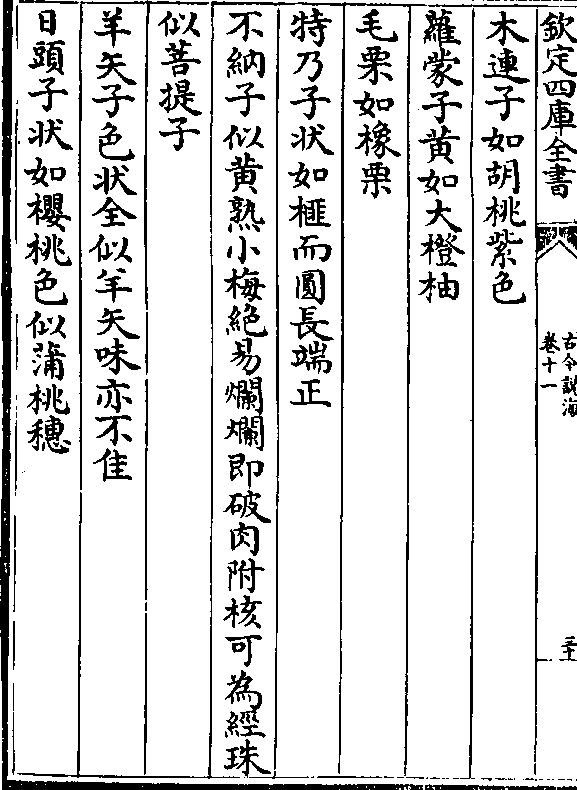 欽定四庫全書
古今說海
卷十一
木連子如胡桃紫色
蘿蒙子黄如大橙柚
毛栗如橡栗
特乃子状如榧而圓長端正
不納子似黄熟小梅絶易爛爛即破肉附核可為經珠
似菩提子
羊矢子色状全似羊矢味亦不佳
日頭子状如櫻桃色似蒲桃穗